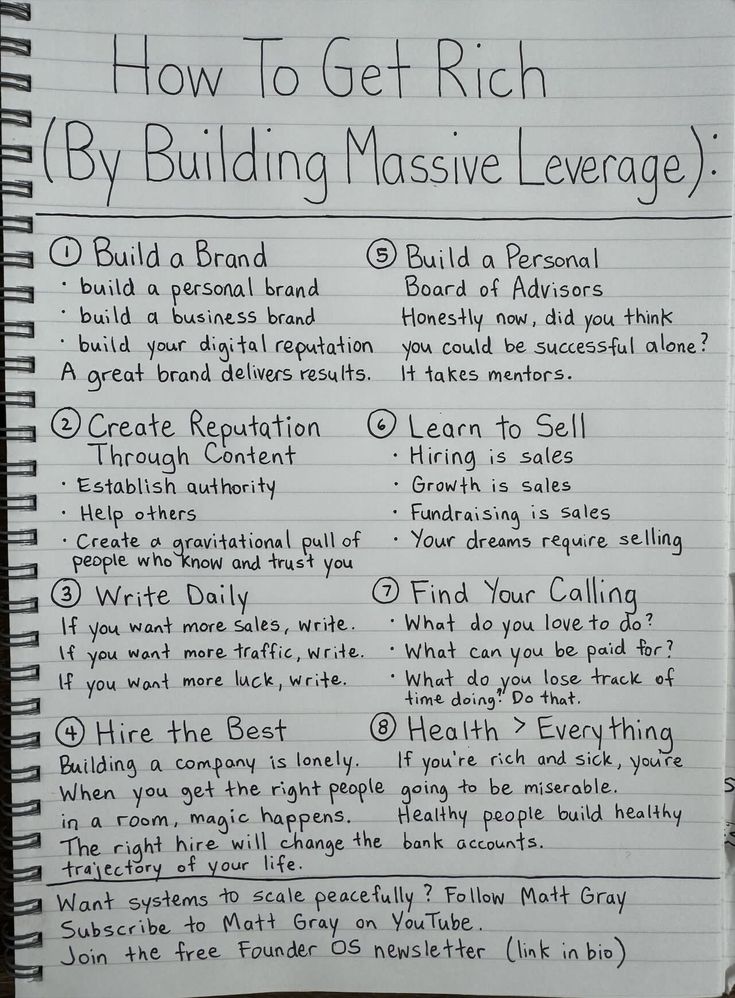 How To Get Rich
(By Building Massive Leverage):
① Build a Brand
· build a personal brand
· build a business brand
· build your digital reputation
A great brand delivers results.
② Create Reputation
Through Content
· Establish authority
· Help others
· Create a gravitational pull of
people who know and trust you
③ Write Daily
If you want more sales, write.
If you want more traffic, write.
If you want more luck, write.
④ Hire the Best
Building a company is lonely.
When you get the right people
in a room, magic happens.
The right hire will change the
trajectory of your life.
⑤ Build a Personal
Board of Advisors
Honestly now, did you think
you could be successful alone?
It takes mentors.
⑥ Learn to Sell
· Hiring is sales
· Growth is sales
· Fundraising is sales
· Your dreams require selling
⑦ Find Your Calling
· What do you love to do?
· What can you be paid for?
· What do you lose track of
time doing? Do that.
⑧ Health > Everything
If you're rich and sick, you're
going to be miserable.
Healthy people build healthy
bank accounts.
Want systems to scale peacefully? Follow Matt Gray
Subscribe to Matt Gray on YouTube.
Join the free Founder OS newsletter (link in bio)